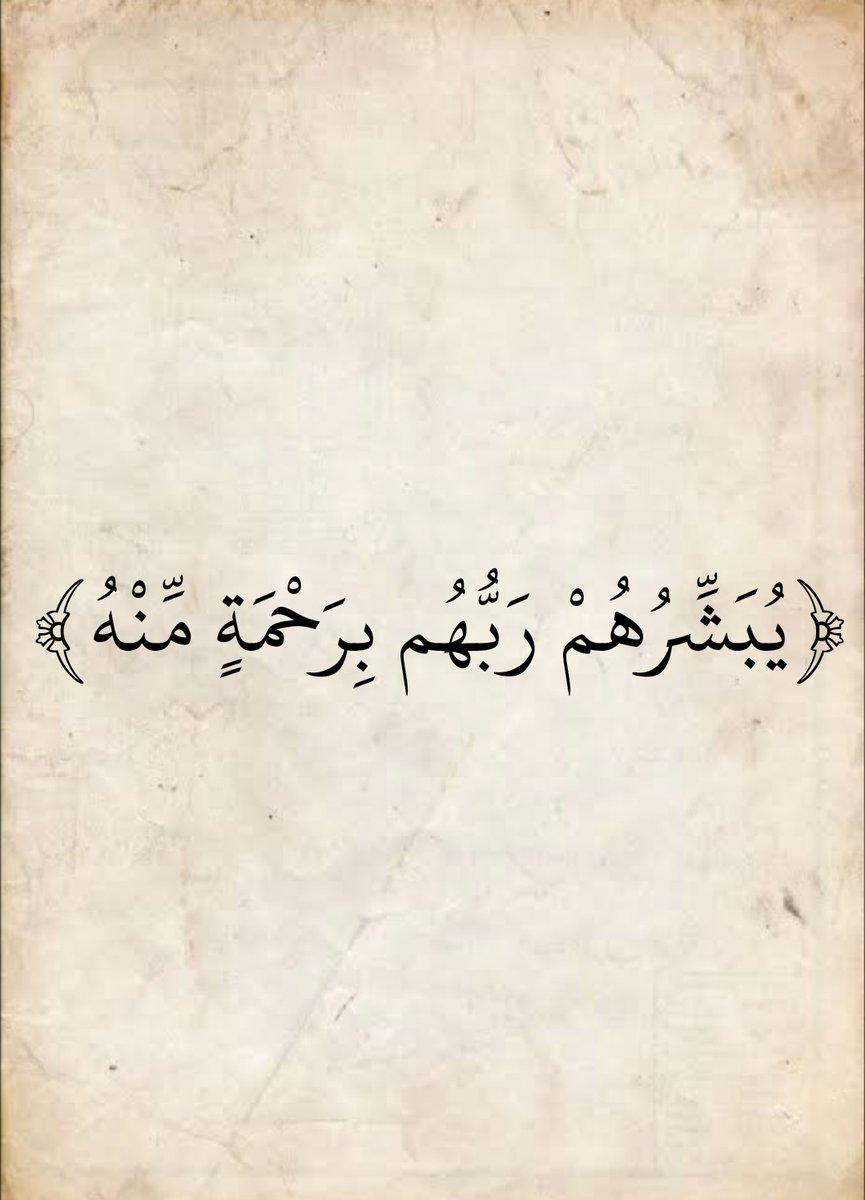 ﴿يُبَشِّرُهُمْ رَبُّهُم بِرَحْمَةٍ مِّنْهُ﴾